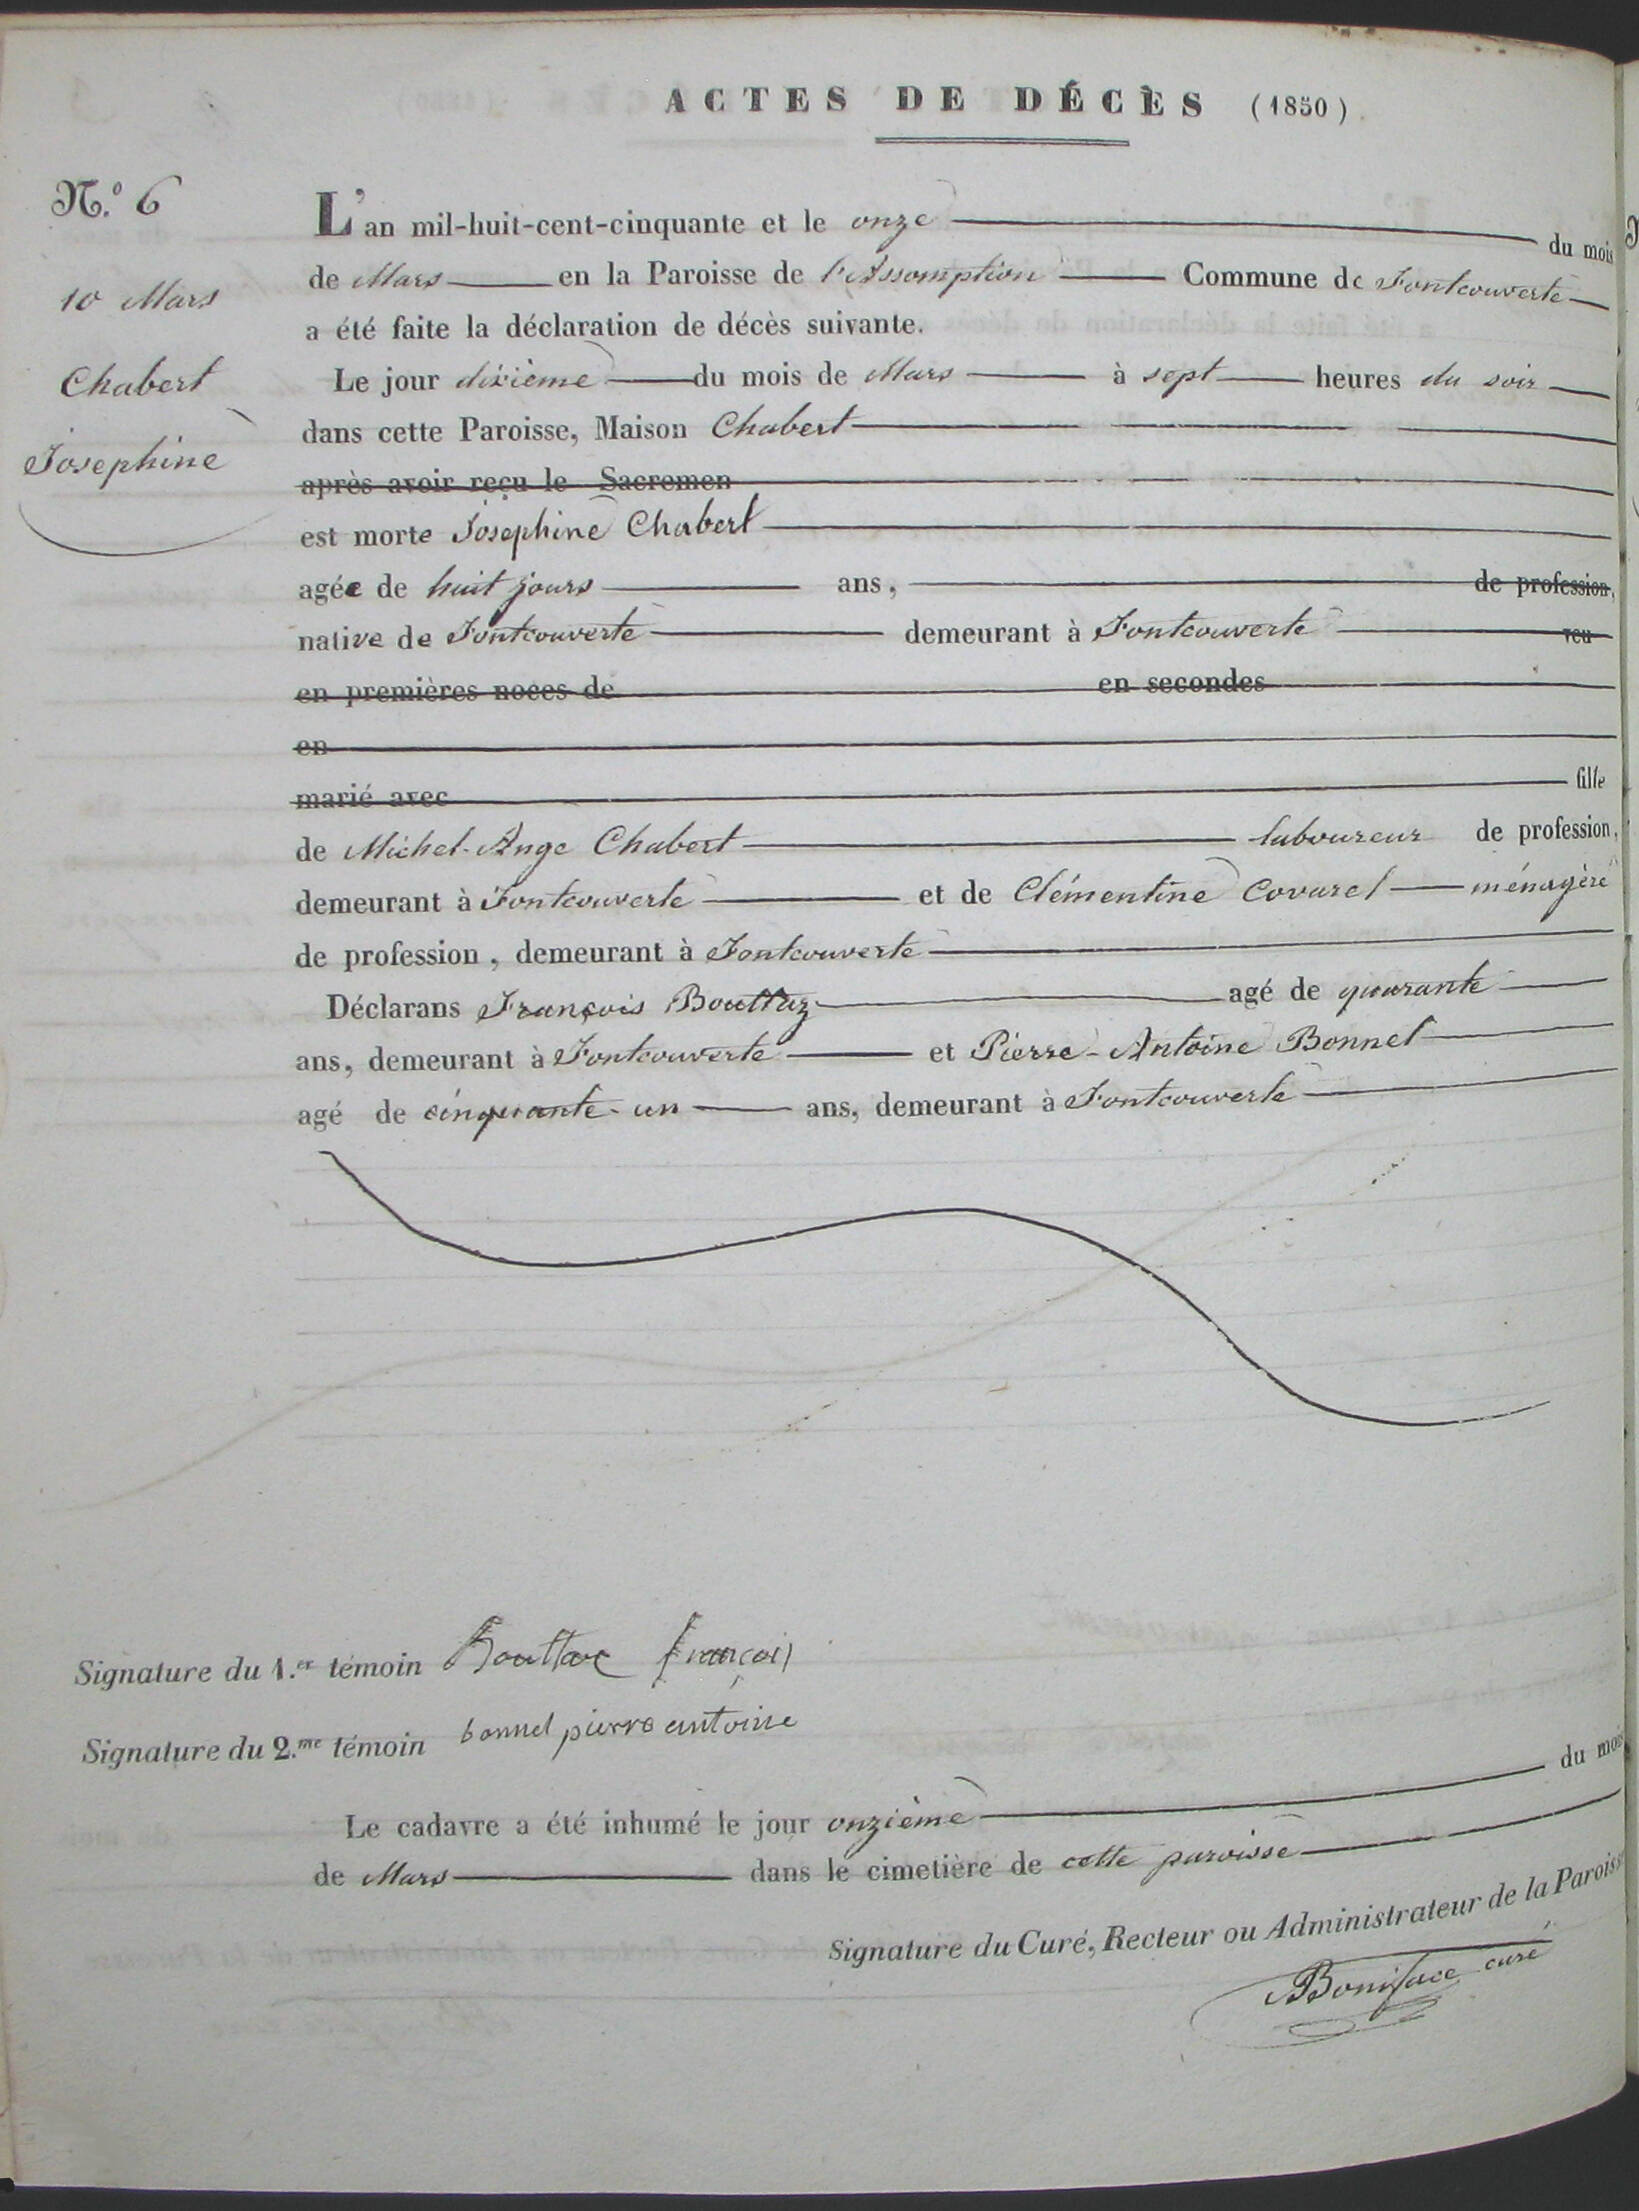 ACTES DE DÉCÈS (1850)
N.º 6
10 Mars
Chabert
Josephine
L'an mil-huit-cent-cinquante et le onze du mois
de Mars en la Paroisse de l'Assomption Commune de Fontcouverte
a été faite la déclaration de décès suivante.
Le jour dixième du mois de Mars à sept heures du soir
dans cette Paroisse, Maison Chabert
après avoir reçu le Sacremen
est morte Josephine Chabert
agée de huit jours ans, de profession,
native de Fontcouverte demeurant à Fontcouverte veu
en premières noces de en secondes
en
marié avec fille
de Michel-Ange Chabert laboureur de profession,
demeurant à Fontcouverte et de Clémentine Covarel ménagère
de profession, demeurant à Fontcouverte
Déclarans François Bouttaz agé de quarante
ans, demeurant à Fontcouverte et Pierre-Antoine Bonnel
agé de cinquante-un ans, demeurant à Fontcouverte
Signature du 1.er témoin Bouttaz françois
Signature du 2.me témoin bonnel pierre antoine
Le cadavre a été inhumé le jour onzième du mois
de Mars dans le cimetière de cette paroisse
Signature du Curé, Recteur ou Administrateur de la Paroisse
Boniface curé